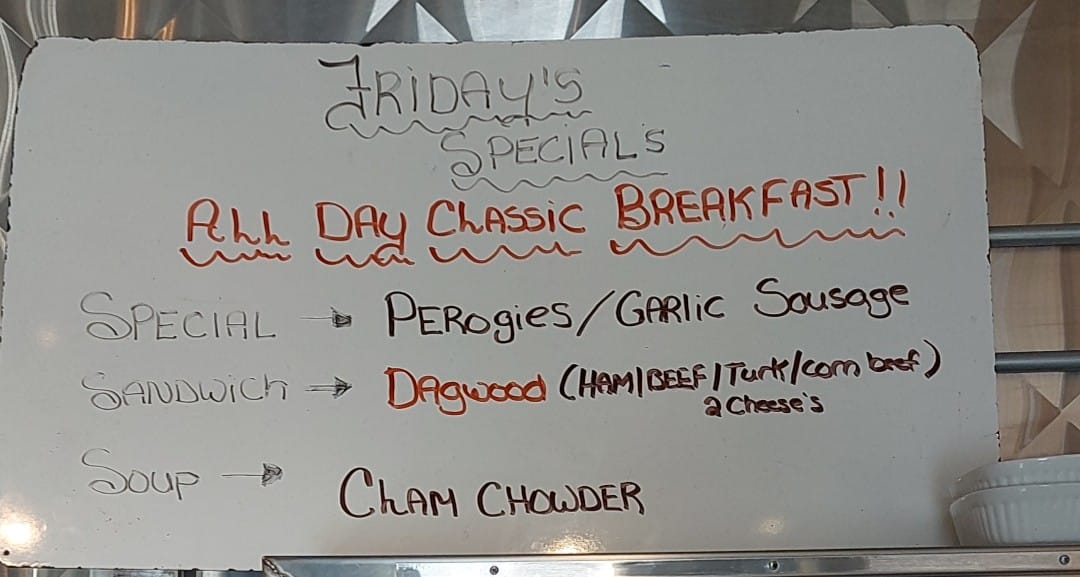 FRiDAY'S
SPECiAL'S
ALL DAY CLASSiC BREAKFAST!!
SPECIAL → PERogies/GARlic Sausage
SANDWich → DAgwood (HAM/BEEF/Turk/corn beef)
2 Cheese's
Soup → CLAM CHOWDER